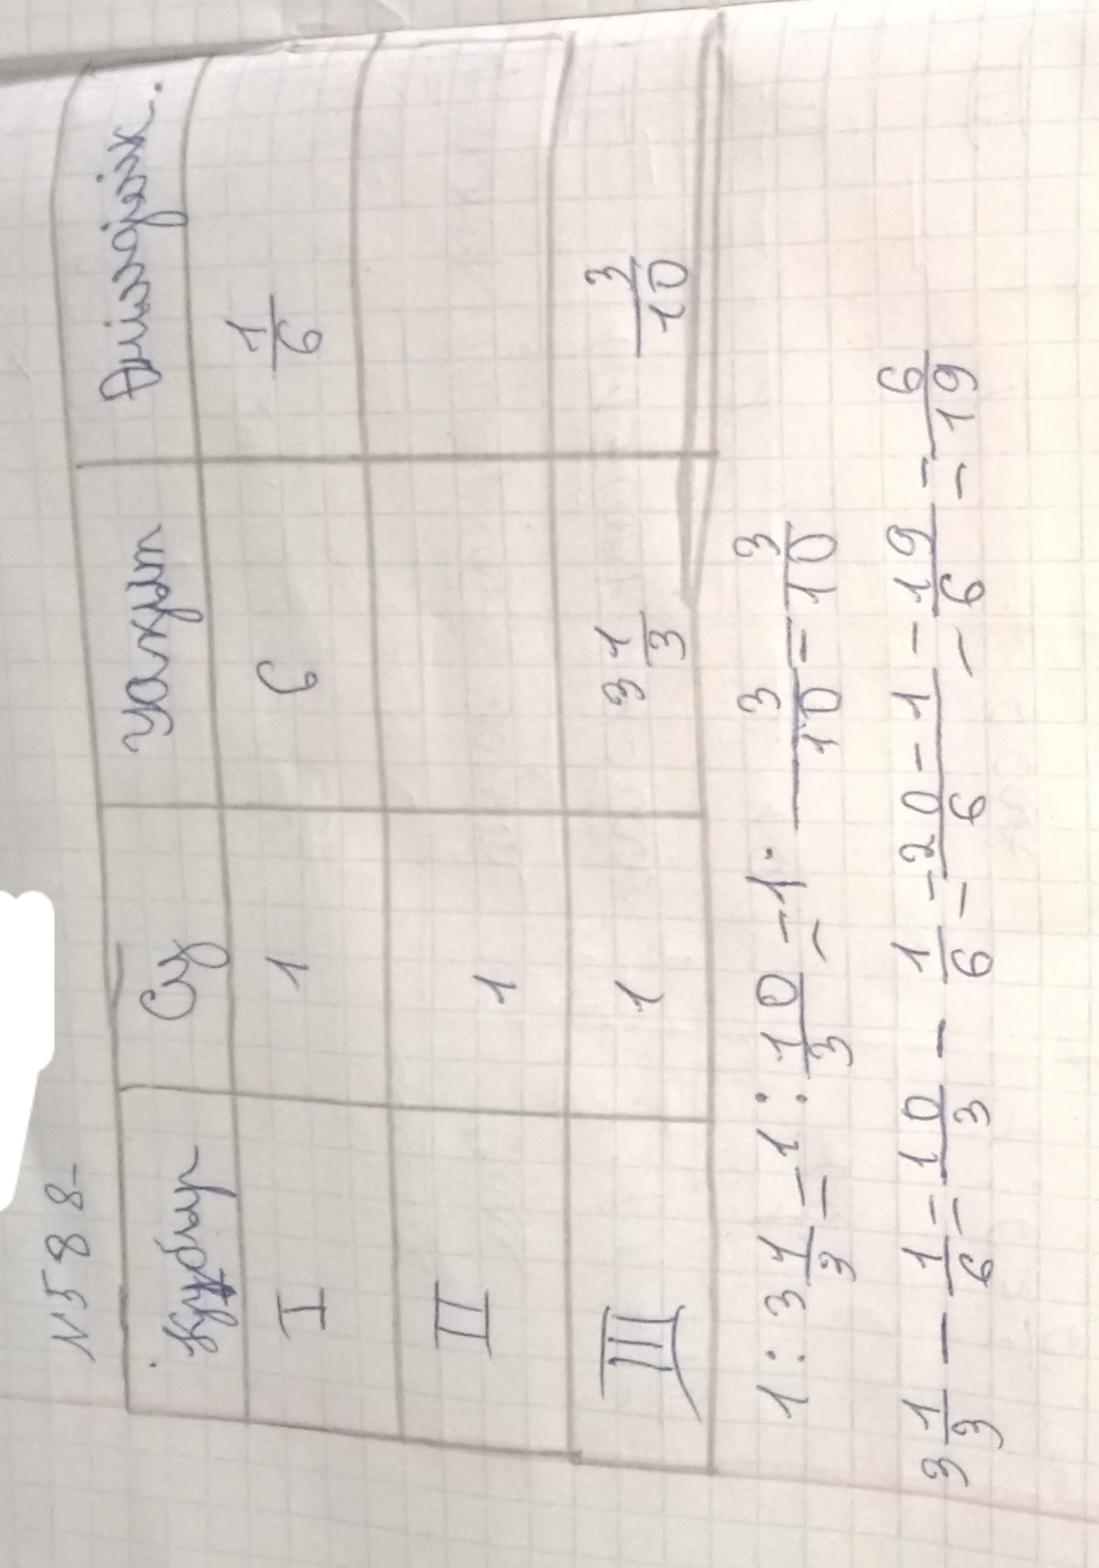 N588-
Құбыр Су уақыт Өнімділік.
I 1 6 1/6
II 1
III 1 3 1/3 3/10
1 : 3 1/3 = 1 : 10/3 = 1 · 3/10 = 3/10
3 1/3 - 1/6 = 10/3 - 1/6 = 20-1/6 = 19/6 = 6/19